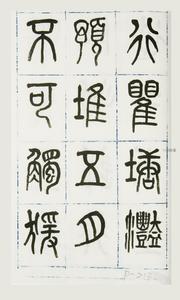 行瞿塘灩
預堆五月
不可觸猨